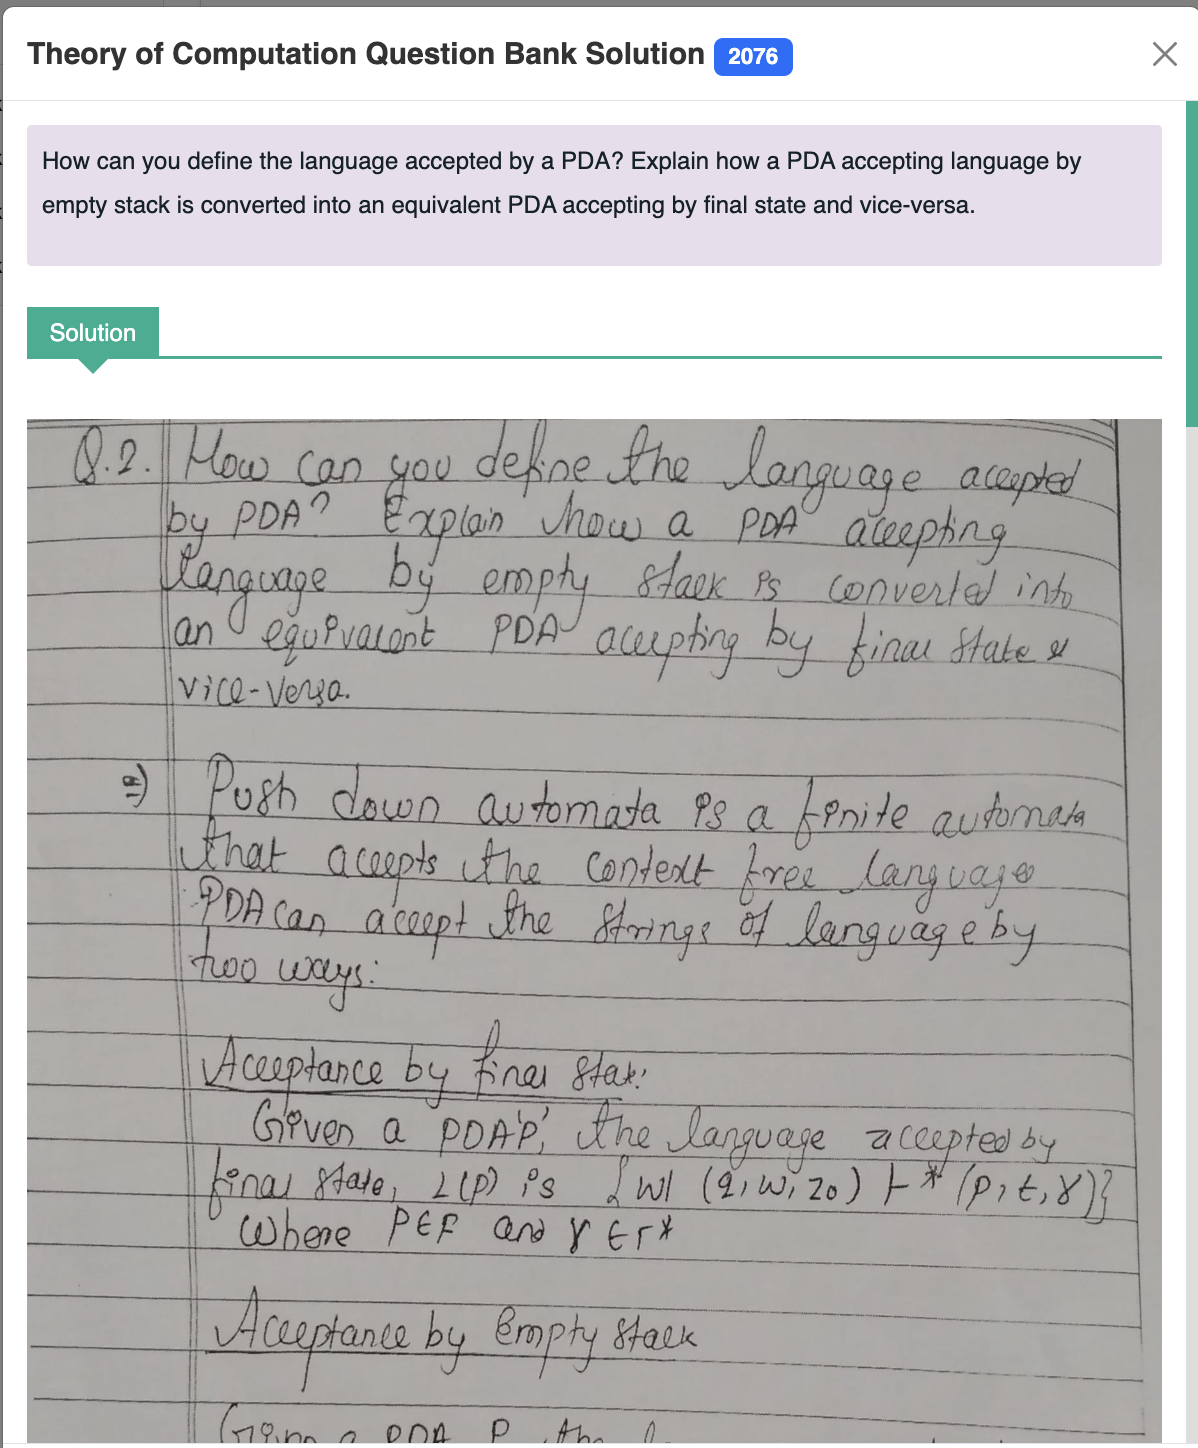 Theory of Computation Question Bank Solution 2076
How can you define the language accepted by a PDA? Explain how a PDA accepting language by
empty stack is converted into an equivalent PDA accepting by final state and vice-versa.
Solution
Q.2. How can you define the language accepted
by PDA? Explain how a PDA accepting
language by empty stack is converted into
an equivalent PDA accepting by final state &
vice-versa.
=) Push down automata is a finite automata
that accepts the context free language
PDA can accept the strings of language by
two ways:
Acceptance by final state:
Given a PDA 'P', the language accepted by
final state, L(P) is {w| (q, w, z0) ⊢* (p, ε, γ)}
where P∈F and γ ∈ Γ*
Acceptance by Empty Stack
Given a PDA P, the